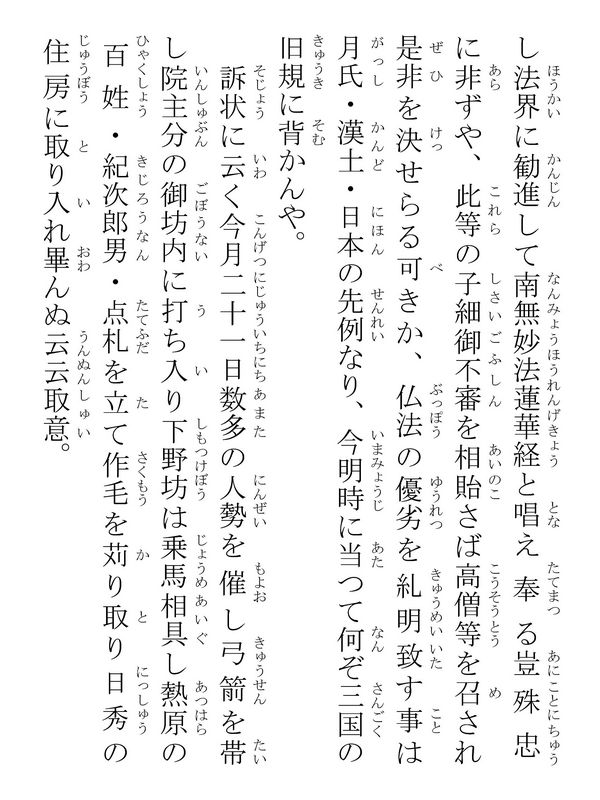 し法界に勧進して南無妙法蓮華経と唱え奉る豈殊忠
に非ずや、此等の子細御不審を相貽さば高僧等を召され
是非を決せらる可きか、仏法の優劣を糺明致す事は
月氏・漢土・日本の先例なり、今明時に当つて何ぞ三国の
旧規に背かんや。
訴状に云く今月二十一日数多の人勢を催し弓箭を帯
し院主分の御坊内に打ち入り下野坊は乗馬相具し熱原の
百姓・紀次郎男・点札を立て作毛を苅り取り日秀の
住房に取り入れ畢んぬ云云取意。